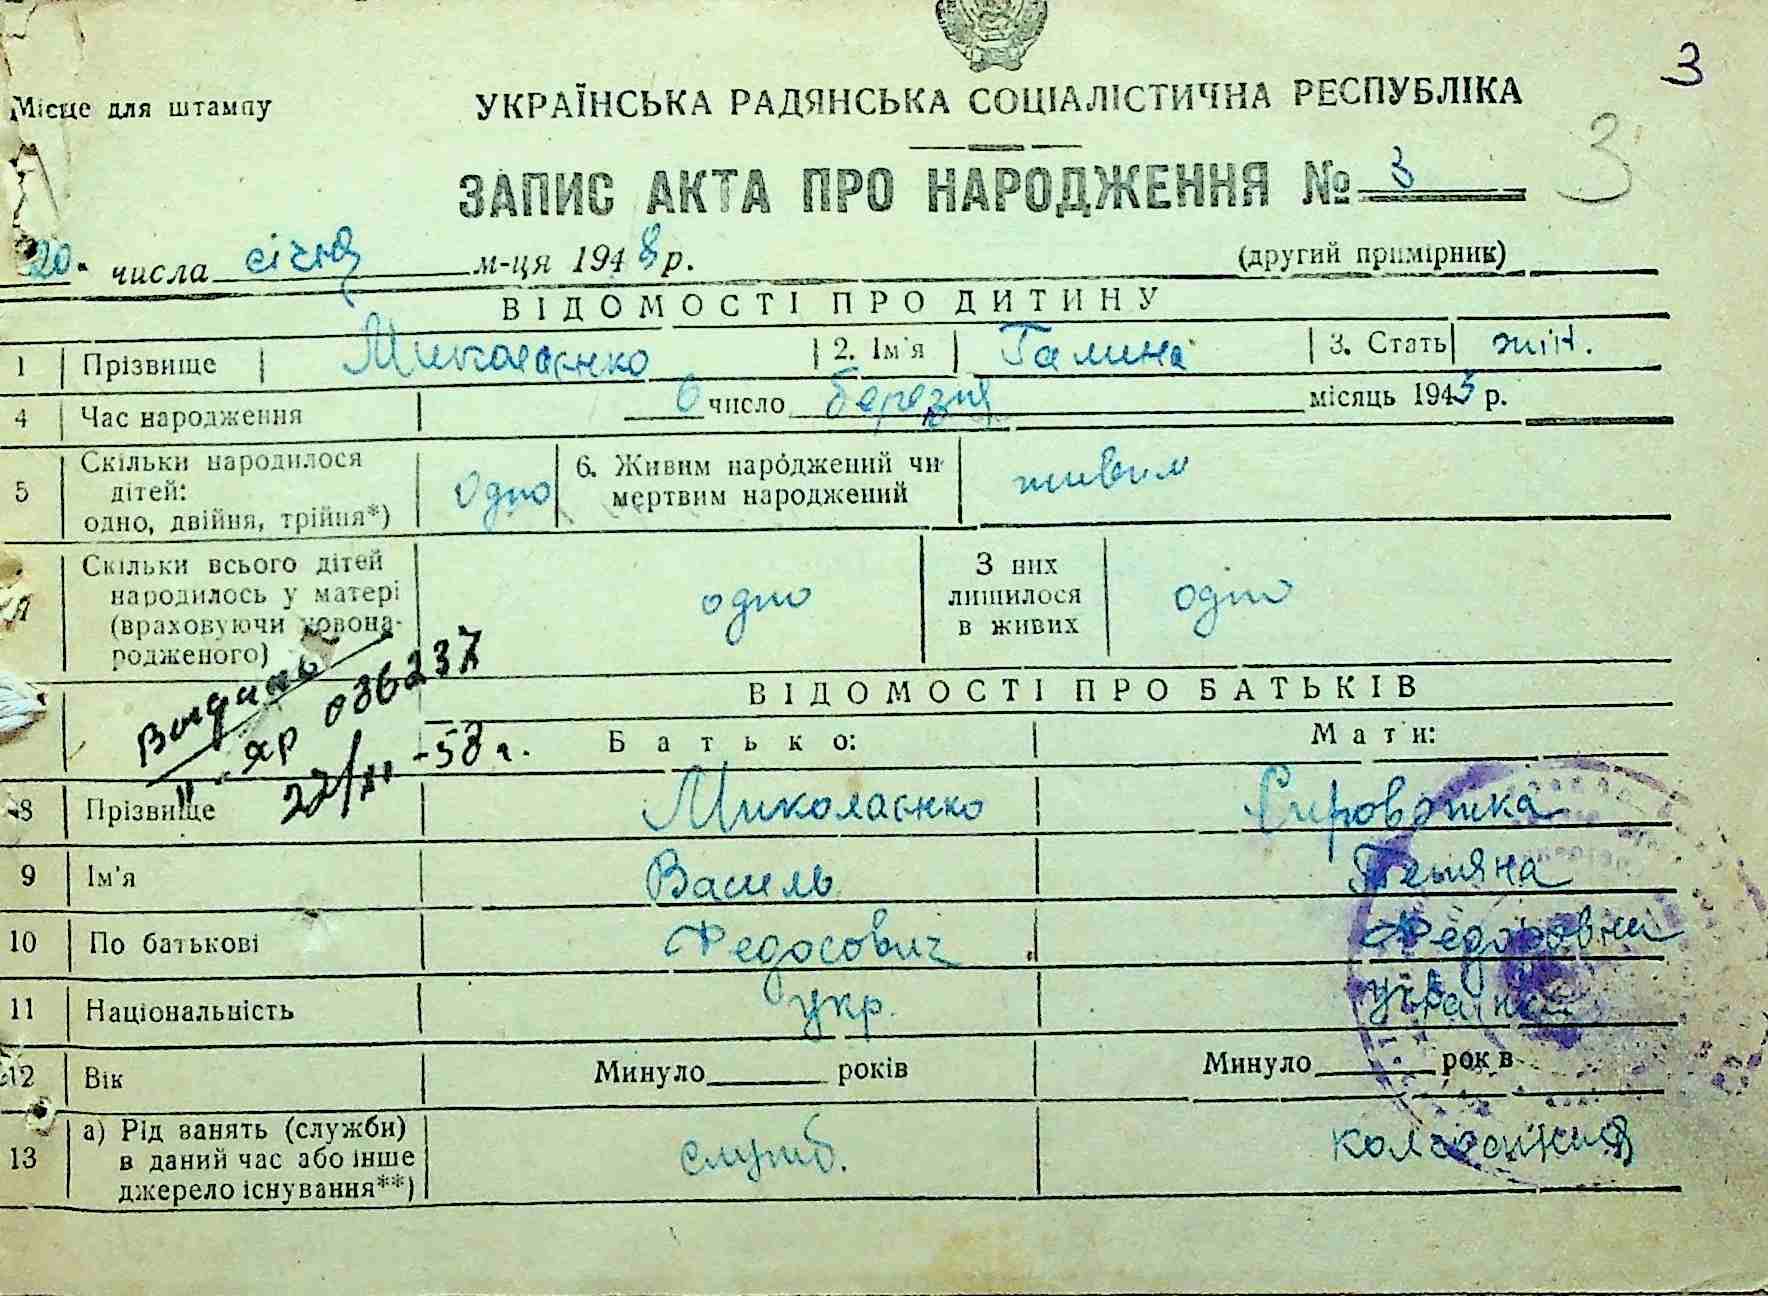 3
Місце для штампу
УКРАЇНСЬКА РАДЯНСЬКА СОЦІАЛІСТИЧНА РЕСПУБЛІКА
3
ЗАПИС АКТА ПРО НАРОДЖЕННЯ № 3
20 числа січня м-ця 1948 р. (другий примірник)
ВІДОМОСТІ ПРО ДИТИНУ
1 Прізвище Миколаєнко 2. Ім'я Галина 3. Стать жін.
4 Час народження 6 число березня місяць 1945 р.
5 Скільки народилося дітей: одно, двійня, трійня*) одно 6. Живим народжений чи мертвим народжений живим
Скільки всього дітей народилось у матері (враховуючи новонародженого) одно З них лишилося в живих одно
036237
22/XI-58 г.
ВІДОМОСТІ ПРО БАТЬКІВ
Батько: Мати:
8 Прізвище Миколаєнко Сировятка
9 Ім'я Василь Тетяна
10 По батькові Федосович Федоровна
11 Національність укр. українка
12 Вік Минуло років Минуло рок в
13 а) Рід занять (служби) в даний час або інше джерело існування**) служб. колгоспниця